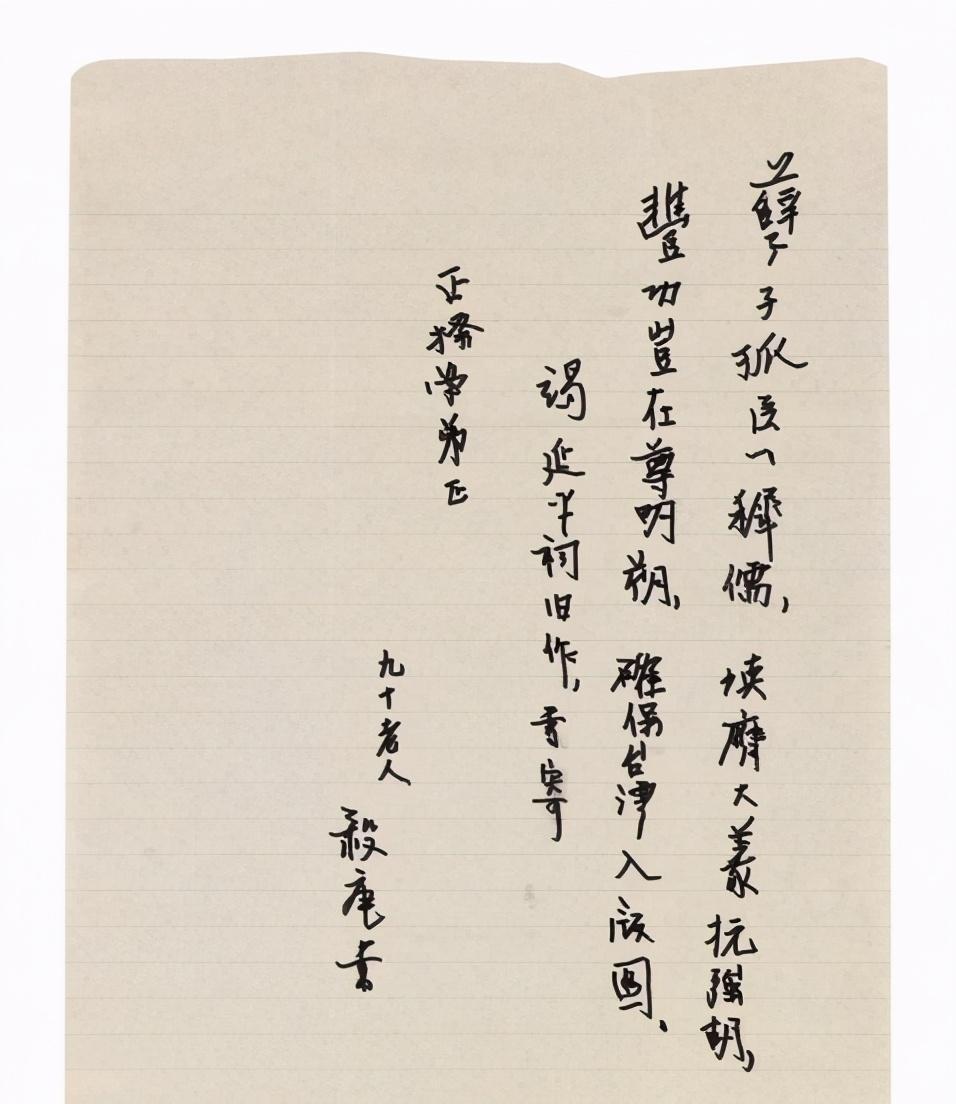 孽子孤臣一稺儒，填膺大義抗強胡，
豐功豈在尊明朔，確保台澎入版圖，
謁延平祠旧作，書寄
正 学弟正
九十老人
毅庵書